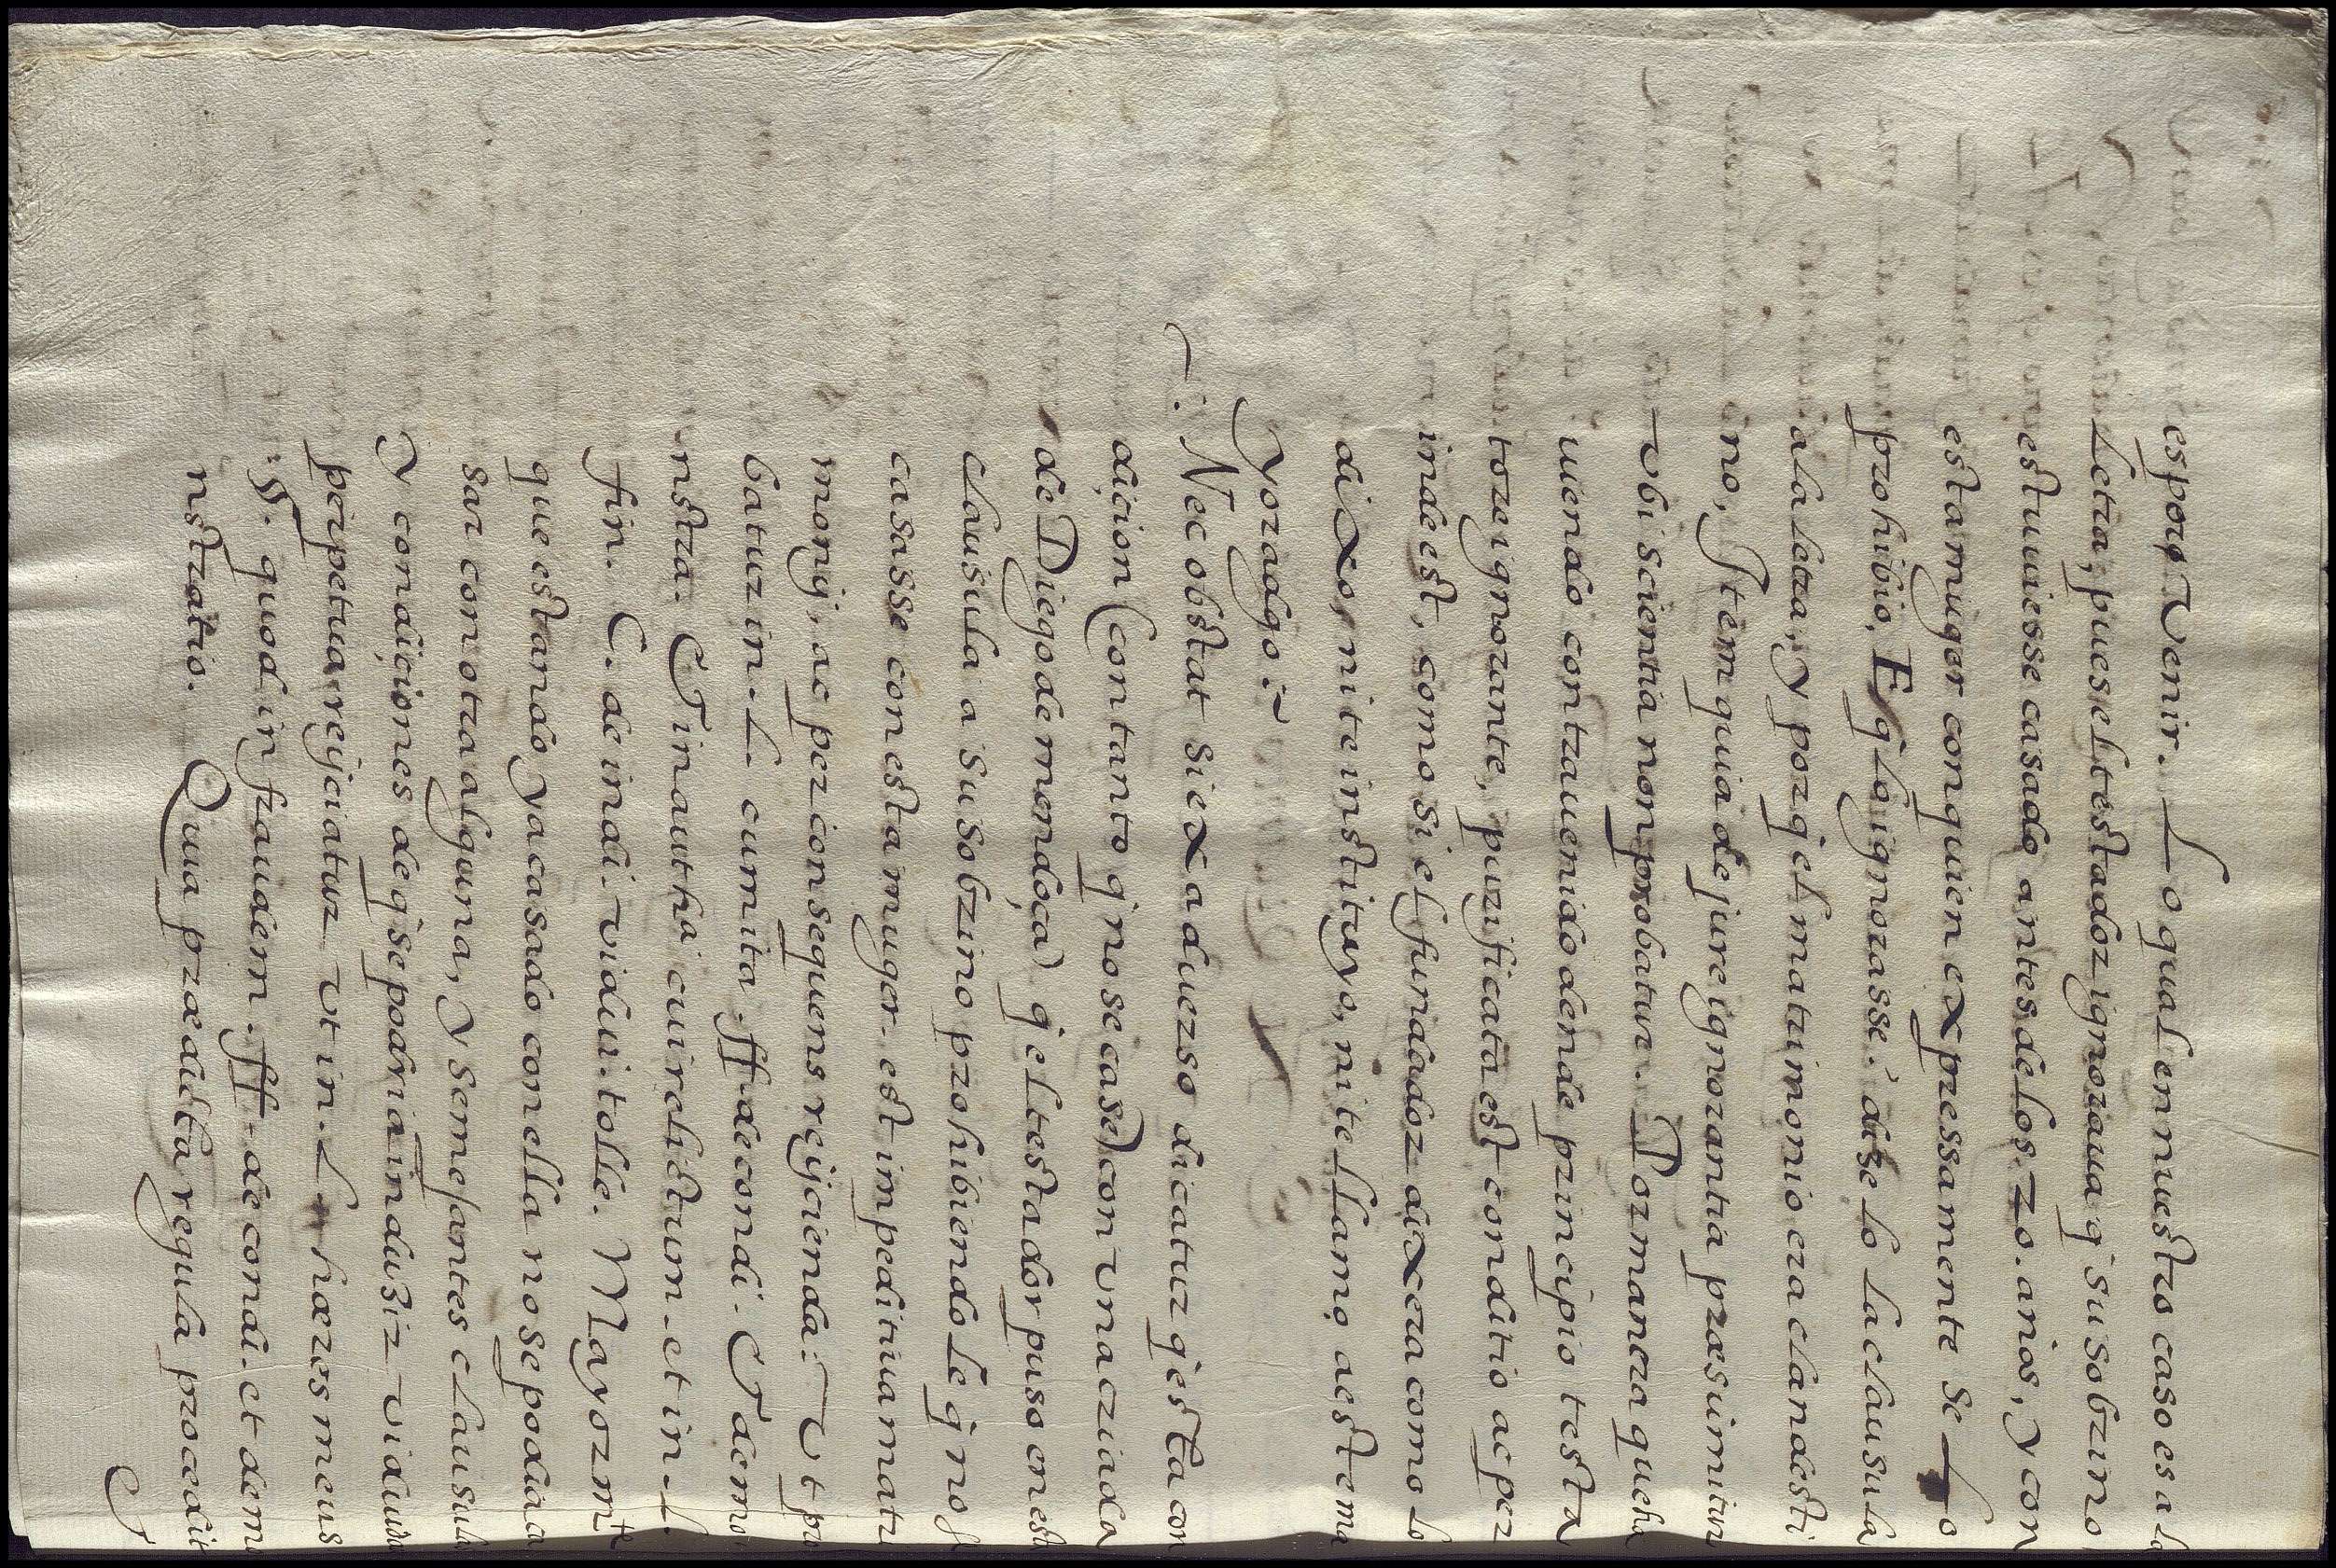 es por Venir. Lo qual en nuestro caso es a la
Letra, pues el testador ignoraua q̃ su sobrino
estuuiesse casado antes de los 20. años, y con
esta muger con quien expressamente se lo
prohibio, E q̃ lo ignorasse, dize lo la clausula
a la letra, y porq̃ el matrimonio era clandesti
no, Item quia de jure ignorantia præsumitur
vbi scientia non probatur. Por manera que ha
uiendo contrauenido dende principio testa
tore ignorante, purificata est conditio ac per
inde est, como si el fundador dixera como lo
dixo, ni te instituyo, ni te llamo a este ma
yoradgo:~
Nec obstat si ex aduerso dicatur q̃ esta con
diçion (con tanto q̃ no se case) con vna criada
de Diego de mendoça) q̃ el testador puso en esta
clausula a su sobrino prohibiendole q̃ no se
casasse con esta muger. est impeditiua matri
monij, ac per consequens rejicienda. Vt pro
batur in. L. cum ita. ff. de condi. Et demo
nstra. Et in auth̃a cui relictum. et in. L.
fin. C. de indi. vidui. tolle. Mayorm.te
que estando ya casado con ella no se podia ca
sar con otra alguna, y semejantes clausulas
y condiçiones de q̃ se podria induzir viduidad
perpetua rejiciatur vt in. L. hæres meus
§. quod in fraudem. ff. de condi. et demo
nstratio. Quia prædicta regula procedit